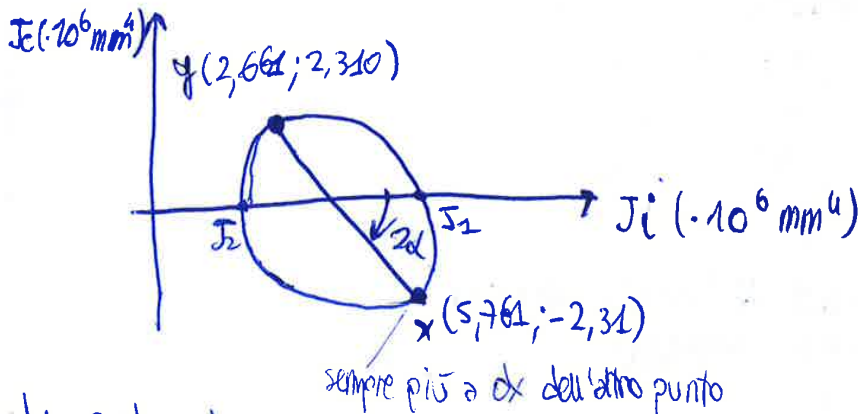 Jc (·10⁶ mm⁴)
y (2,661; 2,310)
J₂
2α
J₁
Ji (·10⁶ mm⁴)
x (5,761; -2,31)
sempre più a dx dell'altro punto